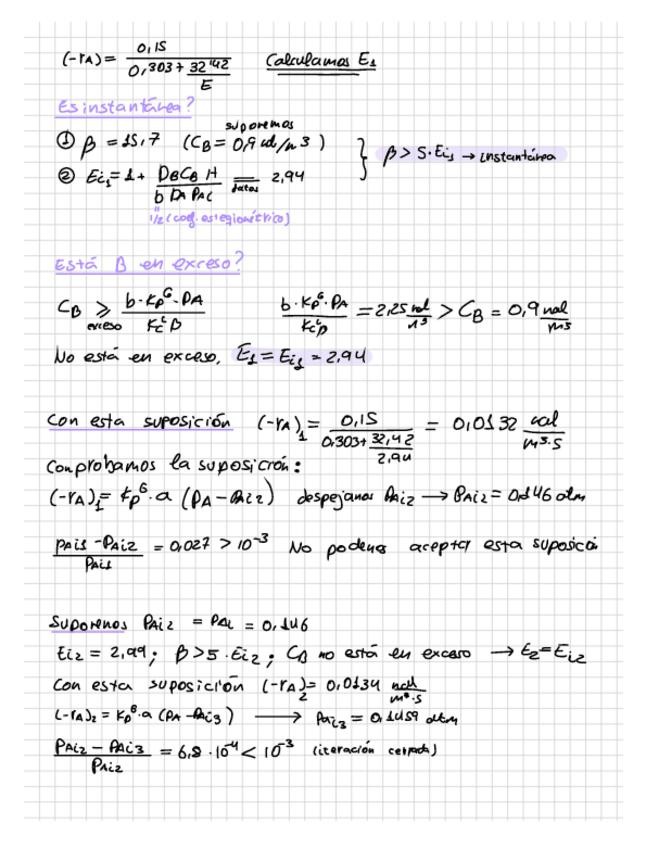 (-rA) = 0,15 / (0,303 + 32'42 / E) Calculamos E1
Es instantánea?
① β = 15,7 (CB = 0,9 mol/m3) suporemos
② Ei1 = 1 + DB CB H / b DA PAi = datos 2,94 } β > 5·Ei1 → instantánea
1/2 (coef. estequiométrico)
Está B en exceso?
CB ≥ exceso b·kp^G·PA / kc^L β b·kp^G·PA / kc^L β = 2,25 mol/m3 > CB = 0,9 mol/m3
No está en exceso, E1 = Ei1 = 2,94
Con esta suposición (-rA)1 = 0,15 / (0,303 + 32,42 / 2,94) = 0,0132 mol / m3·s
Comprobamos la suposición:
(-rA)1 = kp^G·a (PA - PAi2) despejamos PAi2 → PAi2 = 0,146 atm
PAi1 - PAi2 / PAi1 = 0,027 > 10^-3 No podemos aceptar esta suposició
Suponemos PAi2 = PAi = 0,146
Ei2 = 2,99; β > 5·Ei2; CB no está en exceso → E2 = Ei2
Con esta suposición (-rA)2 = 0,0134 mol / m3·s
(-rA)2 = kp^G·a (PA - PAi3) → PAi3 = 0,1459 atm
PAi2 - PAi3 / PAi2 = 6,8·10^-4 < 10^-3 (iteración cerrada)